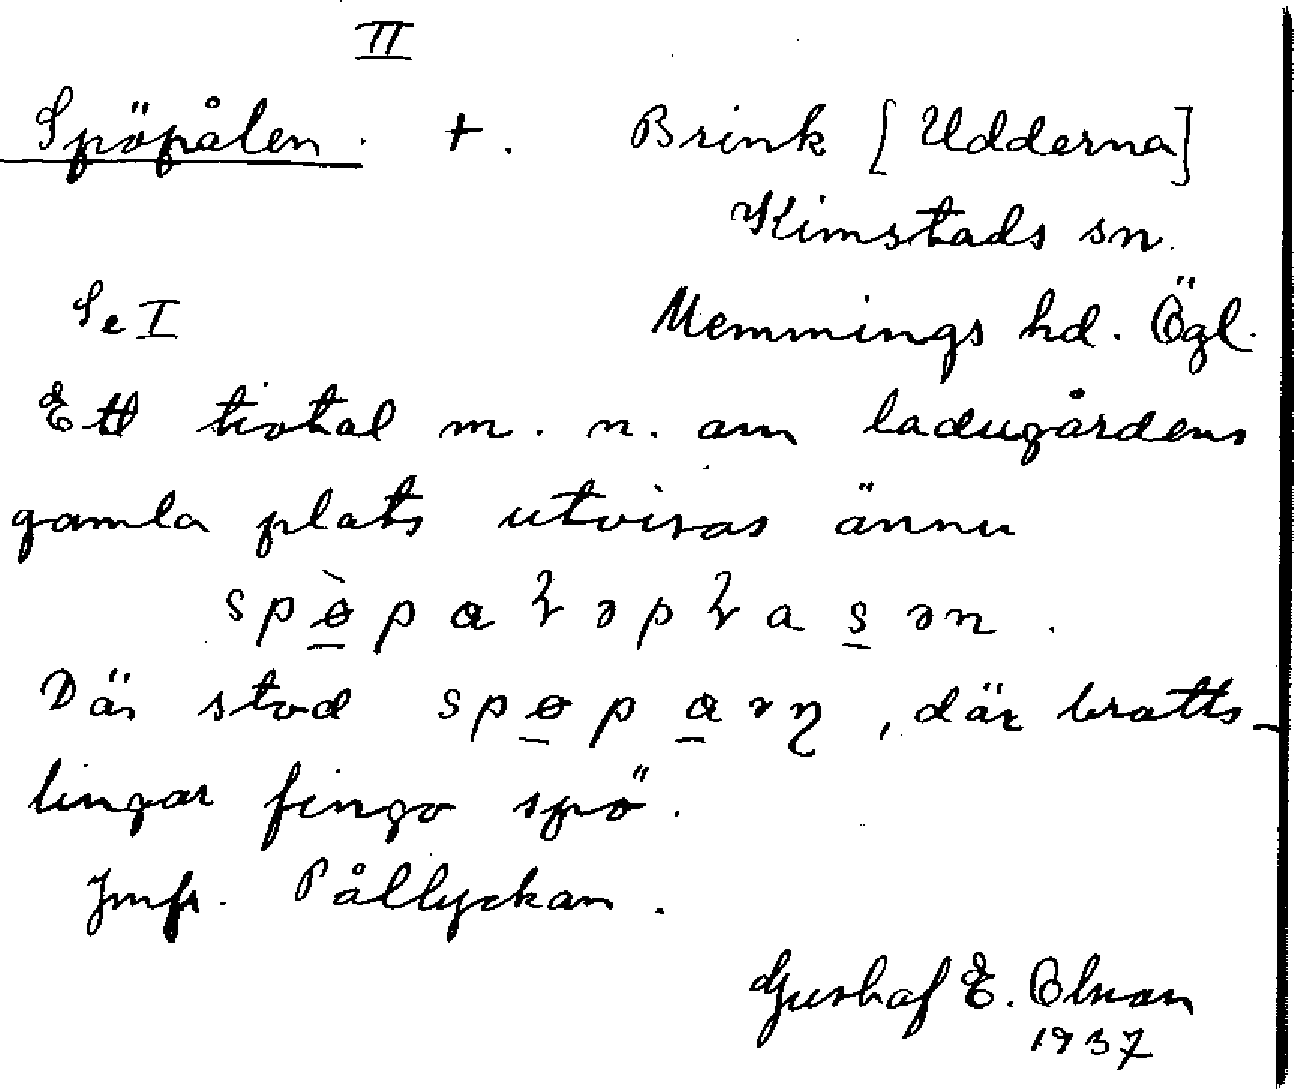 II
Spöpålen. +. Brink [Udderna]
Kimstads sn.
Se I Memmings hd. Ögl.
Ett tiotal m. n. om ladugårdens
gamla plats utvisas ännu
Där stod, där bratts-
lingar fingo spö.
Jmfr. Pållyckan.
Gustaf E. Olson
1937